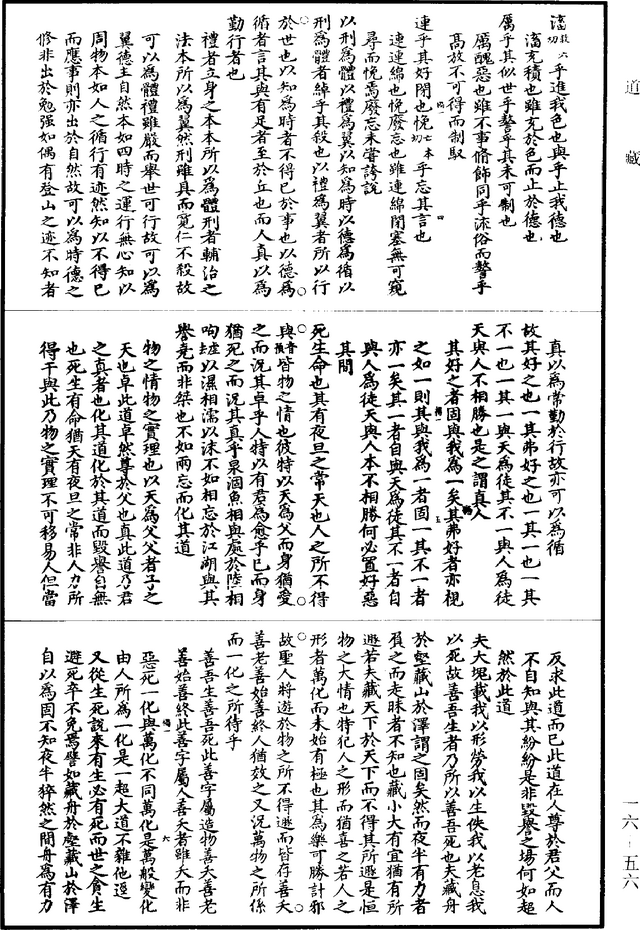 道藏
滀六切乎進我色也與乎止我德也
滀充積也雖充於色而止於德也
厲乎其似世乎謷乎其未可制也
厲醜惡也雖不事脩飾同乎流俗而謷乎
高放不可得而制馭
連乎其好閉也悗乎忘其言也
連連綿也悗廢忘也雖連綿閉塞無可窺
尋而悗焉廢忘未嘗誇說
以刑為體以禮為翼以知為時以德為循以
刑為體者綽乎其殺也以禮為翼者所以行
於世也以知為時者不得已於事也以德為
循者言其與有足者至於丘也而人真以為
勤行者也
禮者立身之本本所以為體刑者輔治之
法本所以為翼然刑雖具而寬仁不殺故
可以為體禮雖嚴而舉世可行故可以為
翼德主自然本如四時之運行無心知以
周物本如人之循行有迹然知以不得已
而應事則亦出於自然故可以為時德之
脩非出於勉强如偶有登山之迹不知者
真以為常勤於行故亦可以為循
故其好之也一其弗好之也一其一也一其
不一也一其一與天為徒其不一與人為徒
天與人不相勝也是之謂真人
其好之者固與我為一矣其弗好者亦視
之如一則其與我為一者固一其不一者
亦一矣其一者自與天為徒其不一者自
與人為徒天與人本不相勝何必置好惡
其間
死生命也其有夜旦之常天也人之所不得
與音預皆物之情也彼特以天為父而身猶愛
之而況其卓乎人特以有君為愈乎已而身
猶死之而況其真乎泉涸魚相與處於陸相
呴以濕相濡以沫不如相忘於江湖與其
譽堯而非桀也不如兩忘而化其道
物之情物之實理也以天為父父者子之
天也卓此道卓然尊於父也真此道乃君
之真者也化其道化於其道而毀譽自無
也死生有命猶天有夜旦之常非人力所
得干與此乃物之實理不可移易人但當
反求此道而已此道在人尊於君父而人
不自知與其紛紛是非毀譽之場何如超
然於此道
夫大塊載我以形勞我以生佚我以老息我
以死故善吾生者乃所以善吾死也夫藏舟
於壑藏山於澤謂之固矣然而夜半有力者
負之而走昧者不知也藏小大有宜猶有所
遯若夫藏天下於天下而不得其所遯是恒
物之大情也特犯人之形而猶喜之若人之
形者萬化而未始有極也其為樂可勝計邪
故聖人將遊於物之所不得遯而皆存善夭
善老善始善終人猶效之又況萬物之所係
而一化之所待乎
善吾生善吾死此善字屬造物善夭善老
善始善終此善字屬人善夭者雖夭而非
惡死一化與萬化不同萬化是萬般變化
由人所為一化是一超大道不雜他逕
又從生死說來有生必有死而世之貪生
避死卒不免焉譬如藏舟於壑藏山於澤
自以為固不知夜半猝然之間舟為有力
一六‐五六